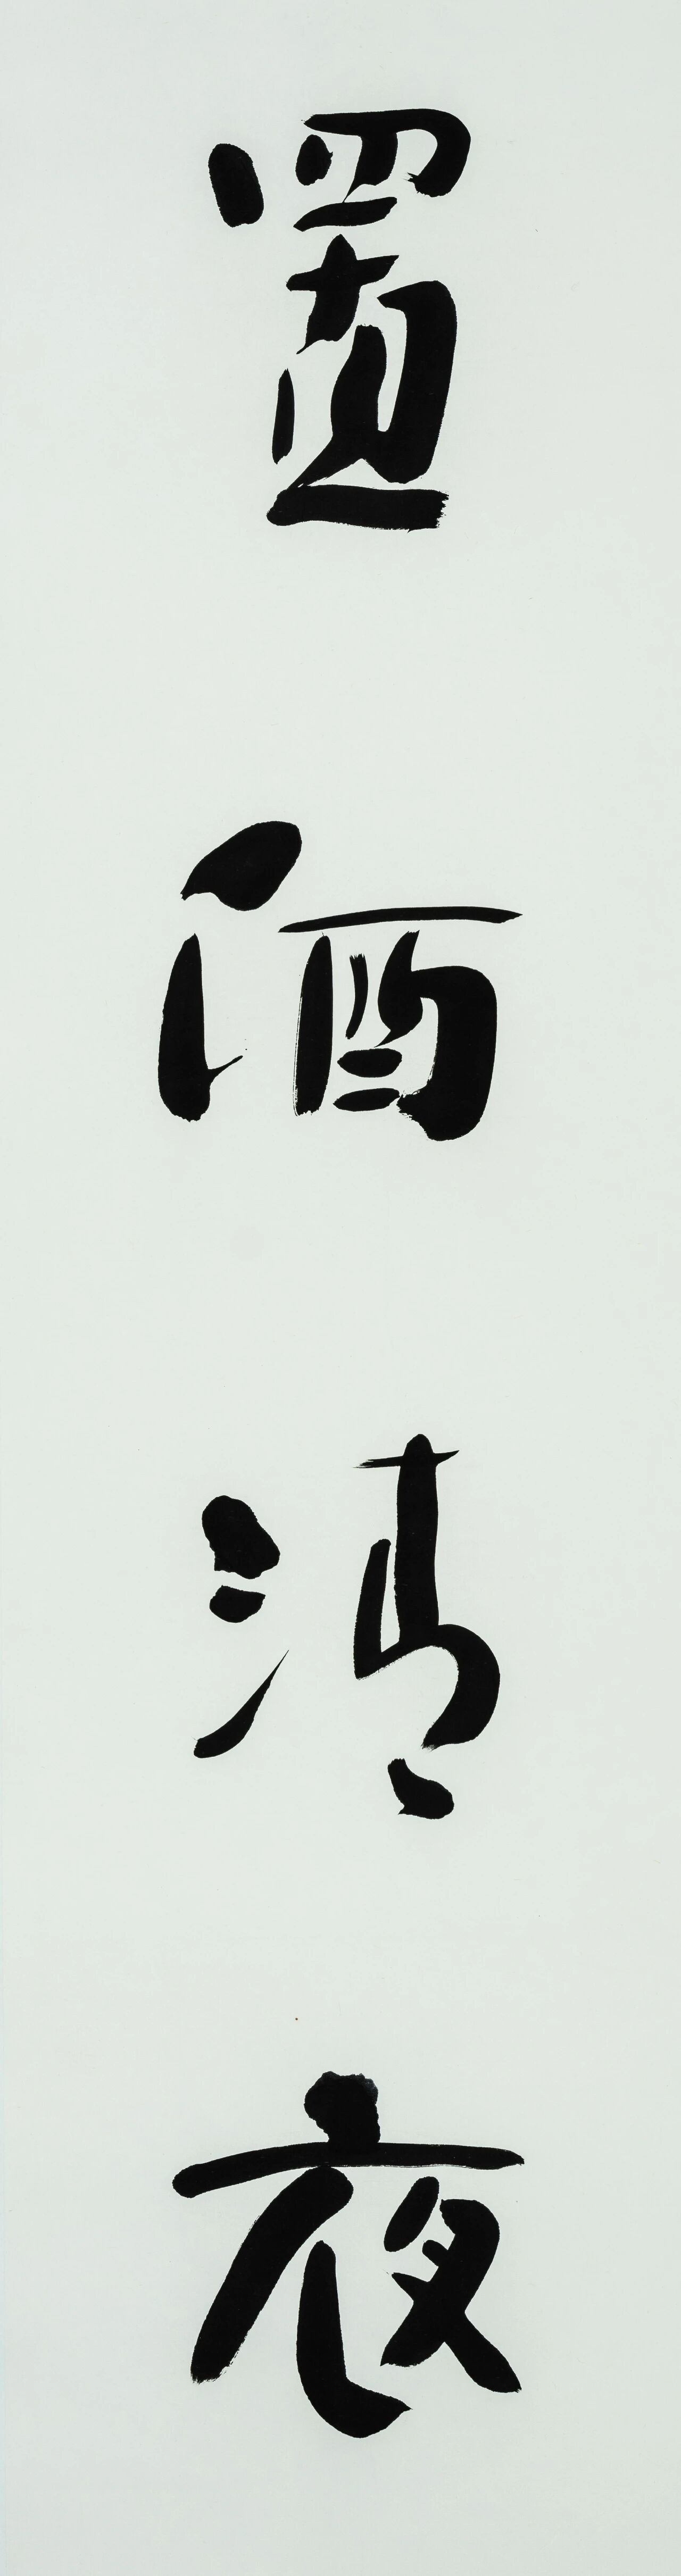 置酒清夜